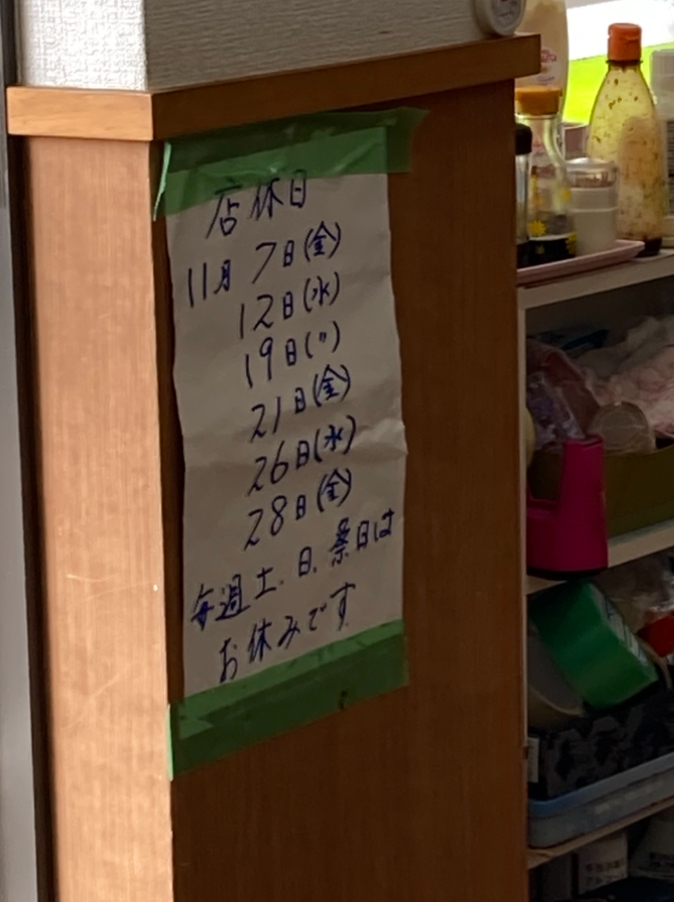 店休日
11月 7日(金)
12日(水)
19日(〃)
21日(金)
26日(水)
28日(金)
毎週土、日、祭日は
お休みです